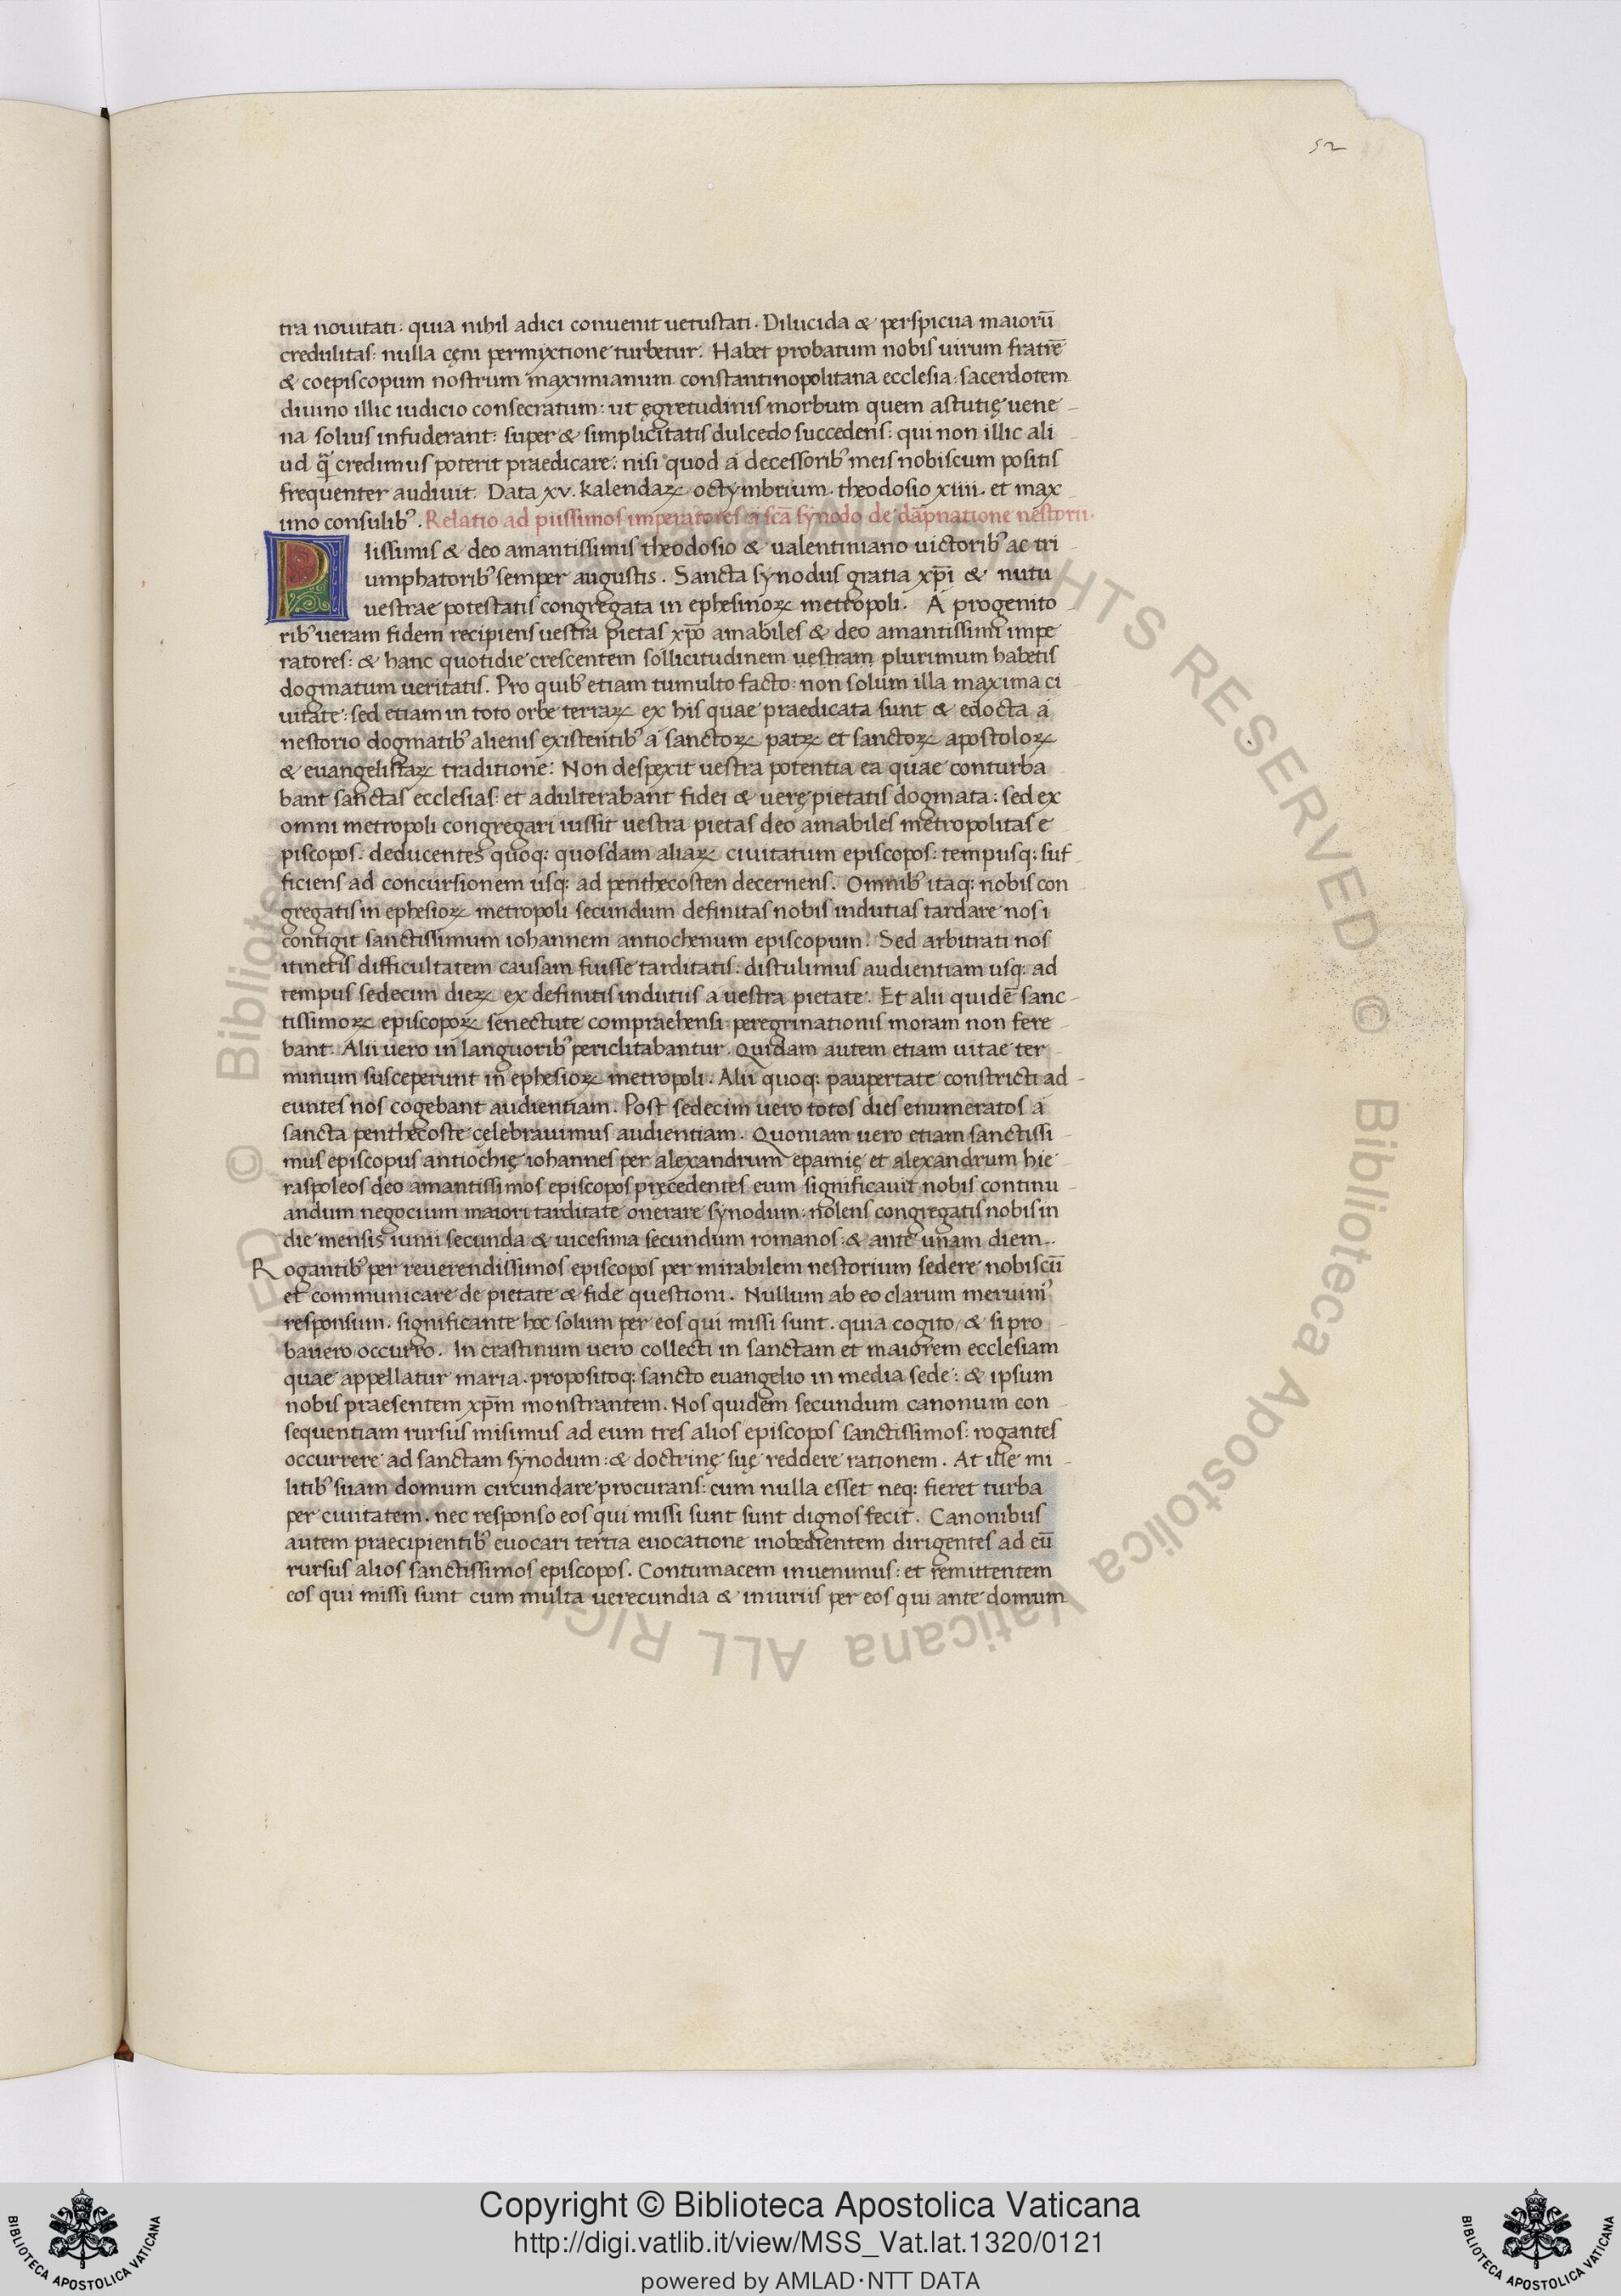 52
tra nouitati: quia nihil adici conuenit uetustati. Dilucida & perspicua maiorū
credulitas: nulla cęni permyxtione turbetur. Habet probatum nobis uirum fratrē
& coepiscopum nostrum maximianum constantinopolitana ecclesia: sacerdotem
diuino illic iudicio consecratum: ut ęgretudinis morbum quem astutię uene-
na solius infuderant: super & simplicitatis dulcedo succedens: qui non illic ali
ud q̃ credimus poterit praedicare: nisi quod a decessorib᾽ meis nobiscum positis
frequenter audiuit. Data xv. kalendaꝝ octymbrium. theodosio xiiii. et max-
imo consulib᾽. Relatio ad piissimos imperatores a scā synodo de dāpnatione nestorii.
P iissimis & deo amantissimis theodosio & ualentiniano uictorib᾽ ac tri-
umphatorib᾽ semper augustis. Sancta synodus gratia xp̄i & nutu
uestrae potestatis congregata in ephesinoꝝ metropoli. A progenito-
rib᾽ ueram fidem recipiens uestra pietas xp̄o amabiles & deo amantissimi impe-
ratores: & hanc quotidie crescentem sollicitudinem uestram plurimum habetis
dogmatum ueritatis. Pro quib᾽ etiam tumulto facto: non solum illa maxima ci-
uitate: sed etiam in toto orbe terraꝝ ex his quae praedicata sunt & edocta a
nestorio dogmatib᾽ alienis existentib᾽ a sanctoꝝ patꝝ et sanctoꝝ apostoloꝝ
& euangelistaꝝ traditione: Non despexit uestra potentia ea quae conturba
bant sanctas ecclesias: et adulterabant fidei & uerę pietatis dogmata: sed ex
omni metropoli congregari iussit uestra pietas deo amabiles metropolitas e-
piscopos: deducentes quoq: quosdam aliaꝝ ciuitatum episcopos: tempusq: suf-
ficiens ad concursionem usq: ad penthecosten decernens. Omnib᾽ itaq: nobis con
gregatis in ephesioꝝ metropoli secundum definitas nobis indutias tardare nos i
contigit sanctissimum iohannem antiochenum episcopum: Sed arbitrati nos
itineris difficultatem causam fuisse tarditatis: distulimus audientiam usq: ad
tempus sedecim dieꝝ ex definitis indutiis a uestra pietate. Et alii quidē sanc-
tissimoꝝ episcopoꝝ senectute compraehensi: peregrinationis moram non fere-
bant: Alii uero in languorib᾽ periclitabantur. Quidam autem etiam uitae ter-
minum susceperunt in ephesioꝝ metropoli. Alii quoq: paupertate constricti ad-
euntes nos cogebant audientiam. Post sedecim uero totos dies enumeratos a
sancta penthecoste cęlebrauimus audientiam. Quoniam uero etiam sanctissi-
mus episcopus antiochię iohannes per alexandrum epamię et alexandrum hie-
raspoleos deo amantissimos episcopos pręcedentes eum significauit nobis continu-
andum negocium maiori tarditate onerare synodum: nolens congregatis nobis in
die mensis iunii secunda & uicesima secundum romanos: & ante unam diem.
Rogantib᾽ per reuerendissimos episcopos per mirabilem nestorium sedere nobiscū
et communicare de pietate & fide questioni. Nullum ab eo clarum meruim᾽
responsum. significante hoc solum per eos qui missi sunt. quia cogito / & si pro-
bauero occurro. In crastinum uero collecti in sanctam et maiorem ecclesiam
quae appellatur maria. propositoq: sancto euangelio in media sede: & ipsum
nobis praesentem xp̄m monstrantem. Nos quidem secundum canonum con-
sequentiam rursus misimus ad eum tres alios episcopos sanctissimos: rogantes
occurrere ad sanctam synodum: & doctrinę suę reddere rationem. At ille mi-
litib᾽ suam domum circundare procurans: cum nulla esset neq: fieret turba
per ciuitatem. nec responso eos qui missi sunt sunt dignos fecit. Canonibus
autem praecipientib᾽ euocari tertia euocatione inobedientem dirigentes ad eū
rursus alios sanctissimos episcopos. Contumacem inuenimus: et remittentem
eos qui missi sunt cum multa uerecundia & iniuriis per eos qui ante domum
© Biblioteca Apostolica Vaticana ALL RIGHTS RESERVED
Copyright © Biblioteca Apostolica Vaticana
http://digi.vatlib.it/view/MSS_Vat.lat.1320/0121
powered by AMLAD·NTT DATA
BIBLIOTECA APOSTOLICA VATICANA
BIBLIOTECA APOSTOLICA VATICANA